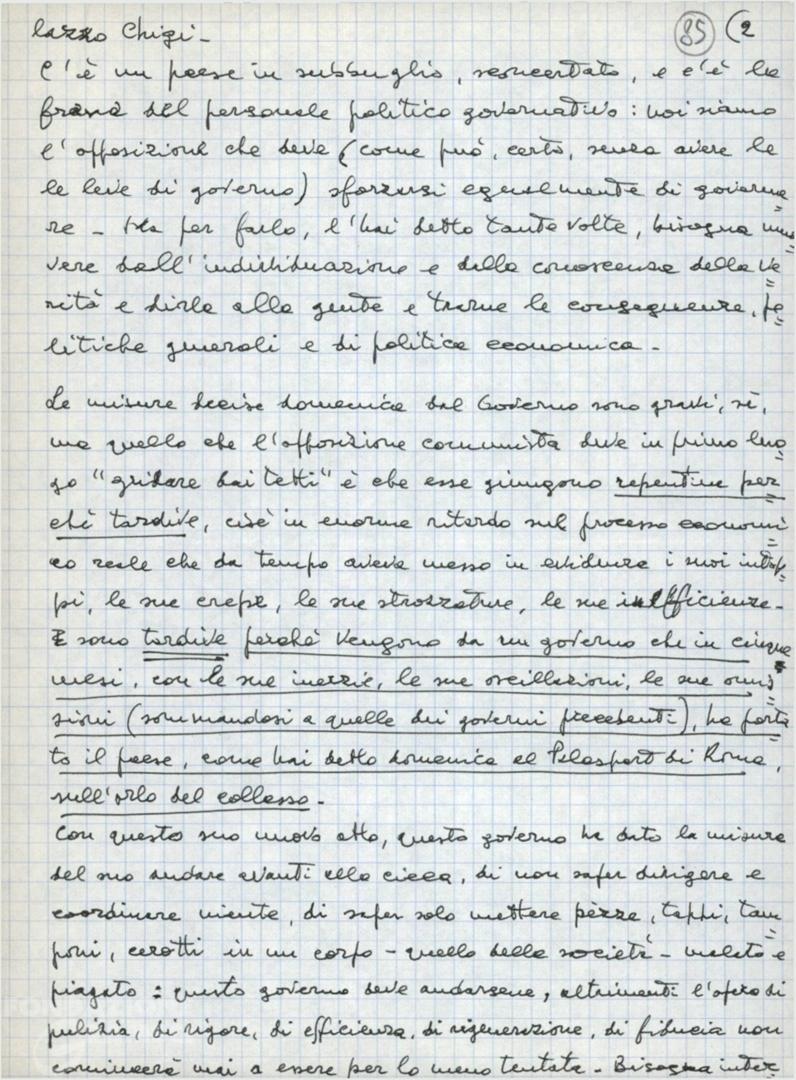 85 (2
lazzo Chigi -
C'è un paese in subbuglio, sconcertato, e c'è la
frana del personale politico governativo: noi siamo
l'opposizione che deve (come può, certo, senza avere le
le leve di governo) sforzarsi egualmente di governa=
re - Ma per farlo, l'hai detto tante volte, bisogna muo=
vere dall'individuazione e dalla conoscenza della ve=
rità e dirla alla gente e trarne le conseguenze, po=
litiche generali e di politica economica -
Le misure decise domenica dal Governo sono gravi, sì,
ma quello che l'opposizione comunista deve in primo luo=
go "gridare dai tetti" è che esse giungono repentine per=
chè tardive, cioè in enorme ritardo sul processo economi=
co reale che da tempo aveva messo in evidenza i suoi intop=
pi, le sue crepe, le sue strozzature, le sue inefficienze -
E sono tardive perchè vengono da un governo che in cinque
mesi, con le sue inerzie, le sue oscillazioni, le sue omis=
sioni (sommandosi a quelle dei governi precedenti), ha porta=
to il paese, come hai detto domenica al Palasport di Roma,
sull'orlo del collasso -
Con questo suo nuovo atto, questo governo ha dato la misura
del suo andare avanti alla cieca, di non saper dirigere e
coordinare niente, di saper solo mettere pèzze, tappi, tam=
poni, cerotti in un corpo - quello della società - malato e
piagato : questo governo deve andarsene, altrimenti l'opera di
pulizia, di rigore, di efficienza, di rigenerazione, di fiducia non
comincerà mai a essere per lo meno tentata - Bisogna inter=